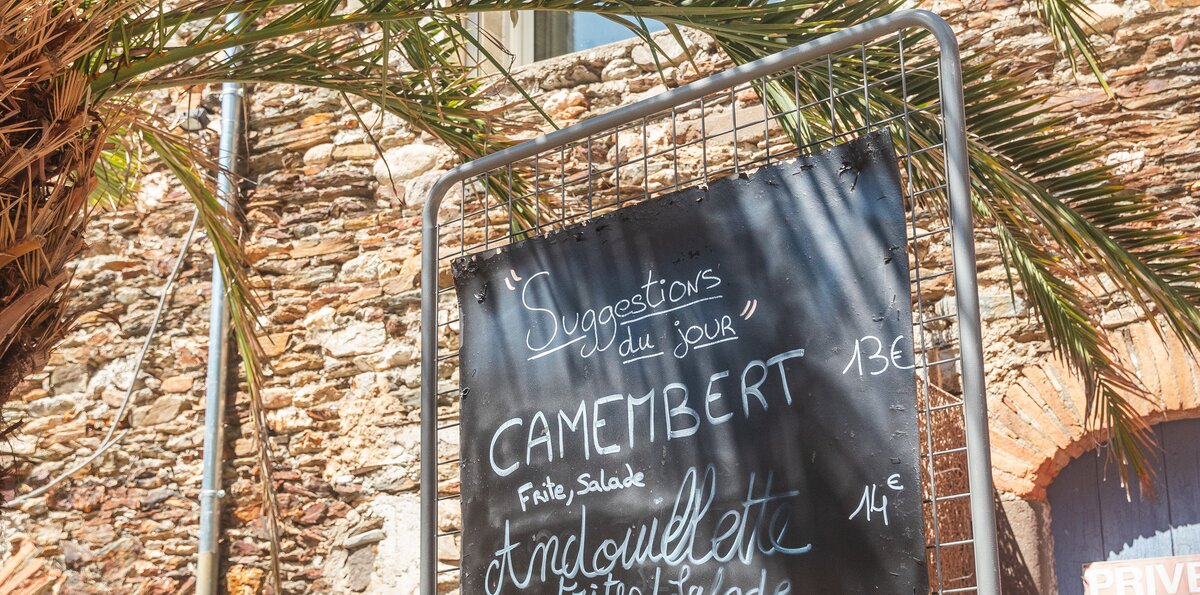 "Suggestions
du jour"
CAMEMBERT 13€
Frite, Salade
Andouillette 14€
Frites/Salade
PRIVE